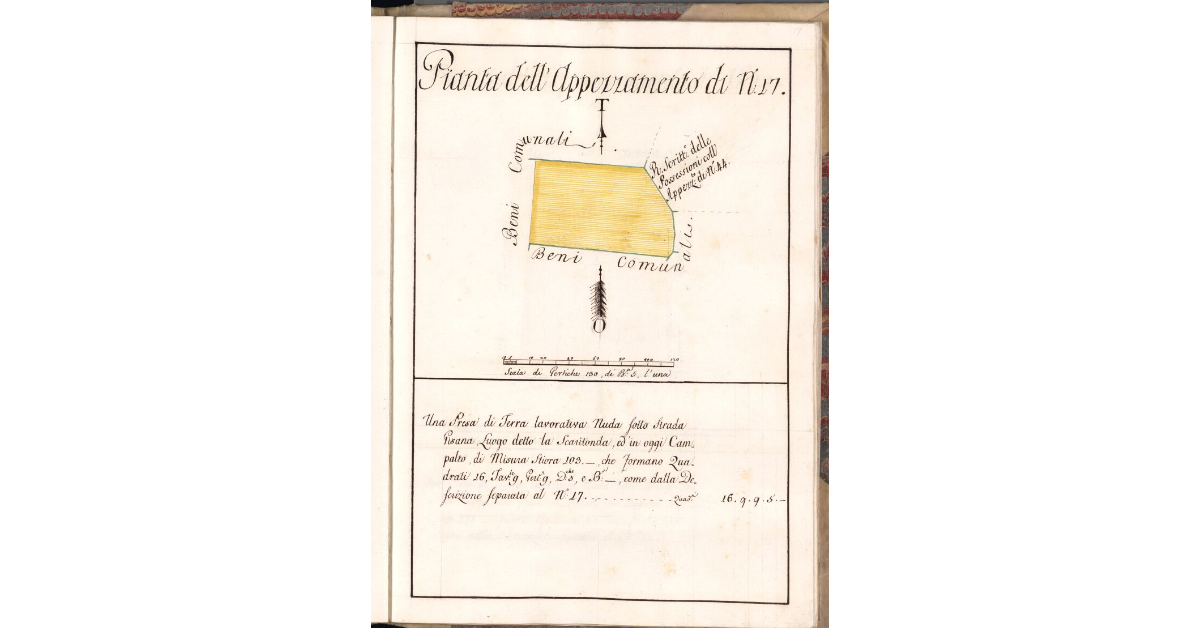 Pianta dell'Appezzamento di N.° 17.
T
Beni Comunali
R. Scritt.ª delle
Possessioni coll'
Appezz.º di N.º 44.
Beni Comunalis.
O
10 20 50 70 100 130
Scala di Pertiche 130, di Bª. 5, l'una
Una Presa di Terra lavorativa Nuda sotto Strada
Pisana, Luogo detto la Scaritonda, ed' in oggi Cam-
palto, di Misura Stiora 103. —, che formano Qua-
drati 16, Tav.e 9, Pert.e 9, D.ˢ 5, e B.ª —, come dalla De-
scrizione separata al N.º 17. - - - - - - - - - Quad.ti 16. 9. 9. 5. —